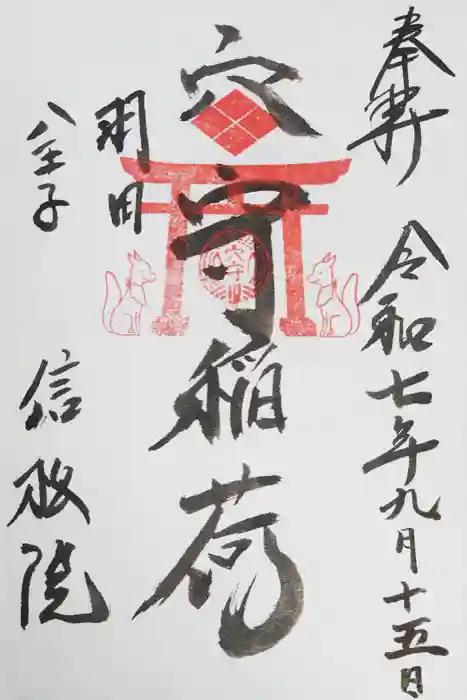 奉拝
令和七年九月十五日
穴守稲荷
羽田
八王子
信松院
穴守